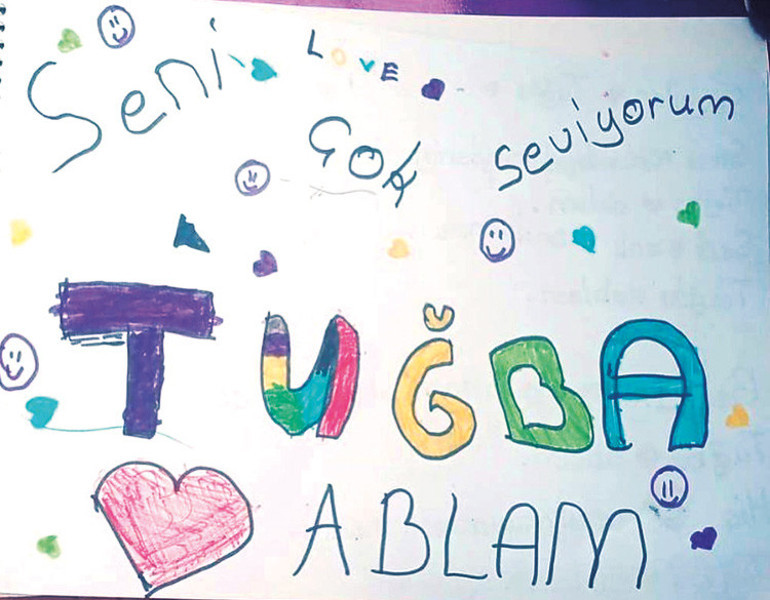 LOVE
Seni ÇOK seviyorum
TUĞBA
ABLAM